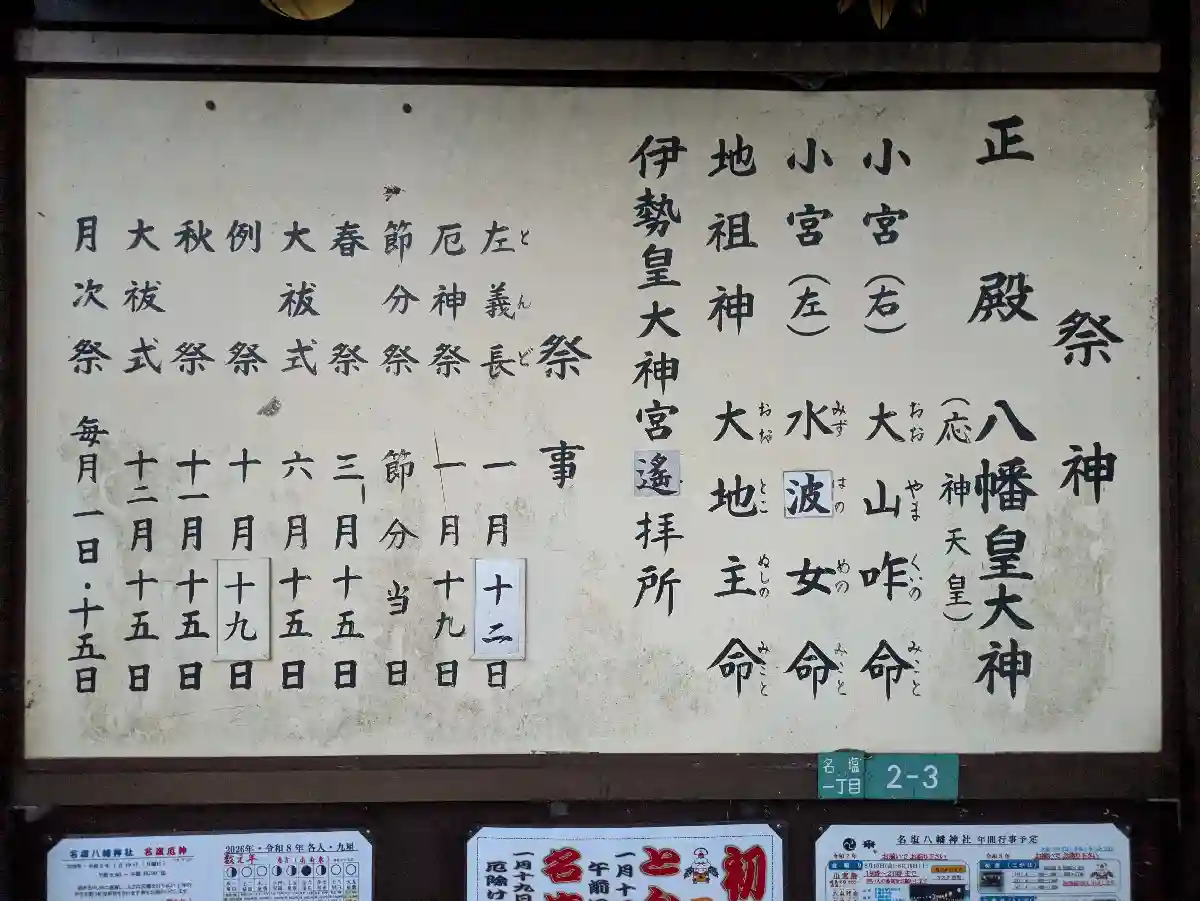 祭神
正殿 八幡皇大神
(応神天皇)
小宮(右) 大山咋命
おお やま くいの みこと
小宮(左) 水波女命
みず はの めの みこと
地祖神 大地主命
おお とこ ぬしの みこと
伊勢皇大神宮遙拝所
祭事
左義長 一月十二日
とんど
厄神祭 一月十九日
節分祭 節分当日
春祭 三月十五日
大祓式 六月十五日
例祭 十月十九日
秋祭 十一月十五日
大祓式 十二月十五日
月次祭 毎月一日・十五日
名塩
一丁目
2-3
名塩八幡神社 名塩厄神
2026年・令和8年 各人・九星
数え年
初
名塩八幡神社 年間行事予定